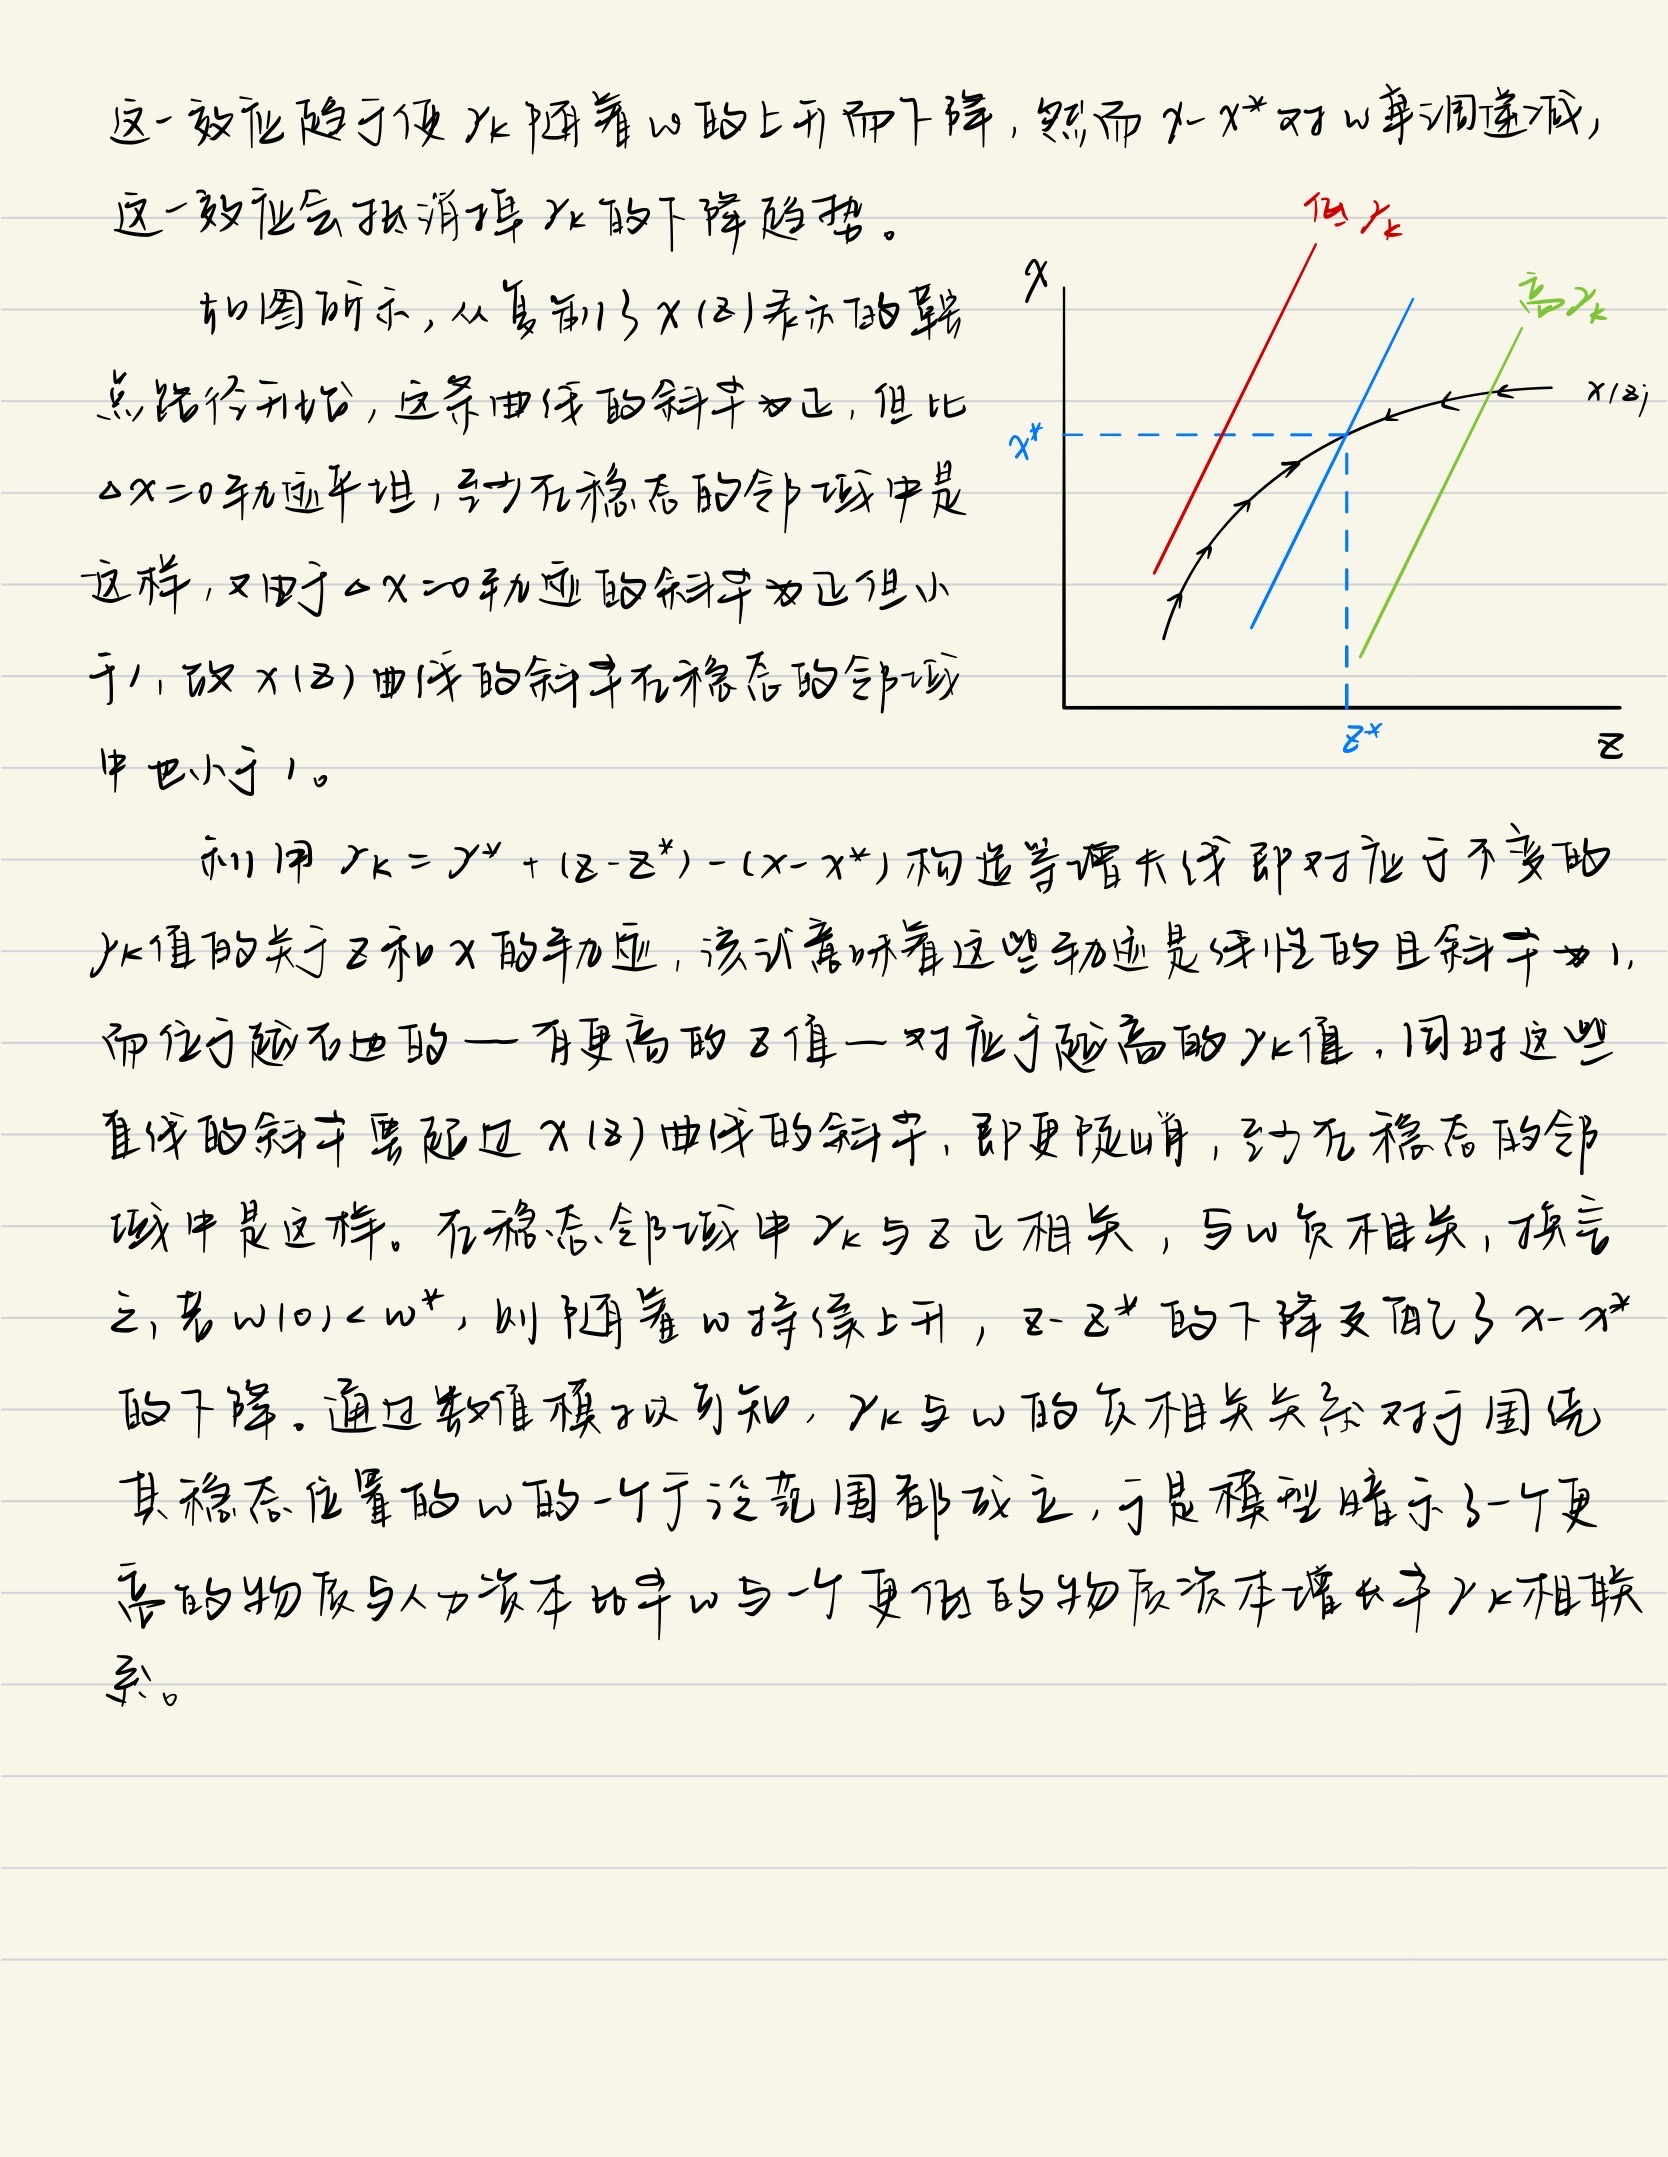 这一效应趋于使γk随着ω的上升而下降，然而χ-χ*对ω单调递减，
这一效应会抵消掉γk的下降趋势。
低γk
高γk
χ
如图所示，从复制了χ(z)表示的鞍
点路径开始，这条曲线的斜率为正，但比
χ(z)
χ*
Δχ=0轨迹平坦，至少在稳态的邻域中是
这样，又由于Δχ=0轨迹的斜率为正但小
于1，故χ(z)曲线的斜率在稳态的邻域
中也小于1。
z*
z
利用γk=γ*+(z-z*)-(χ-χ*)构造等增长线即对应于不变的
γk值的关于z和χ的轨迹，该式意味着这些轨迹是线性的且斜率为1，
而位于越右边的一有更高的z值一对应于越高的γk值，同时这些
直线的斜率要超过χ(z)曲线的斜率，即更陡峭，至少在稳态的邻
域中是这样。在稳态邻域中γk与z正相关，与ω负相关，换言
之，若ω(0)<ω*，则随着ω持续上升，z-z*的下降支配了χ-χ*
的下降。通过数值模拟可知，γk与ω的负相关关系对于围绕
其稳态位置的ω的一个宽泛范围都成立，于是模型暗示了一个更
高的物质与人力资本比率ω与一个更低的物质资本增长率γk相联
系。